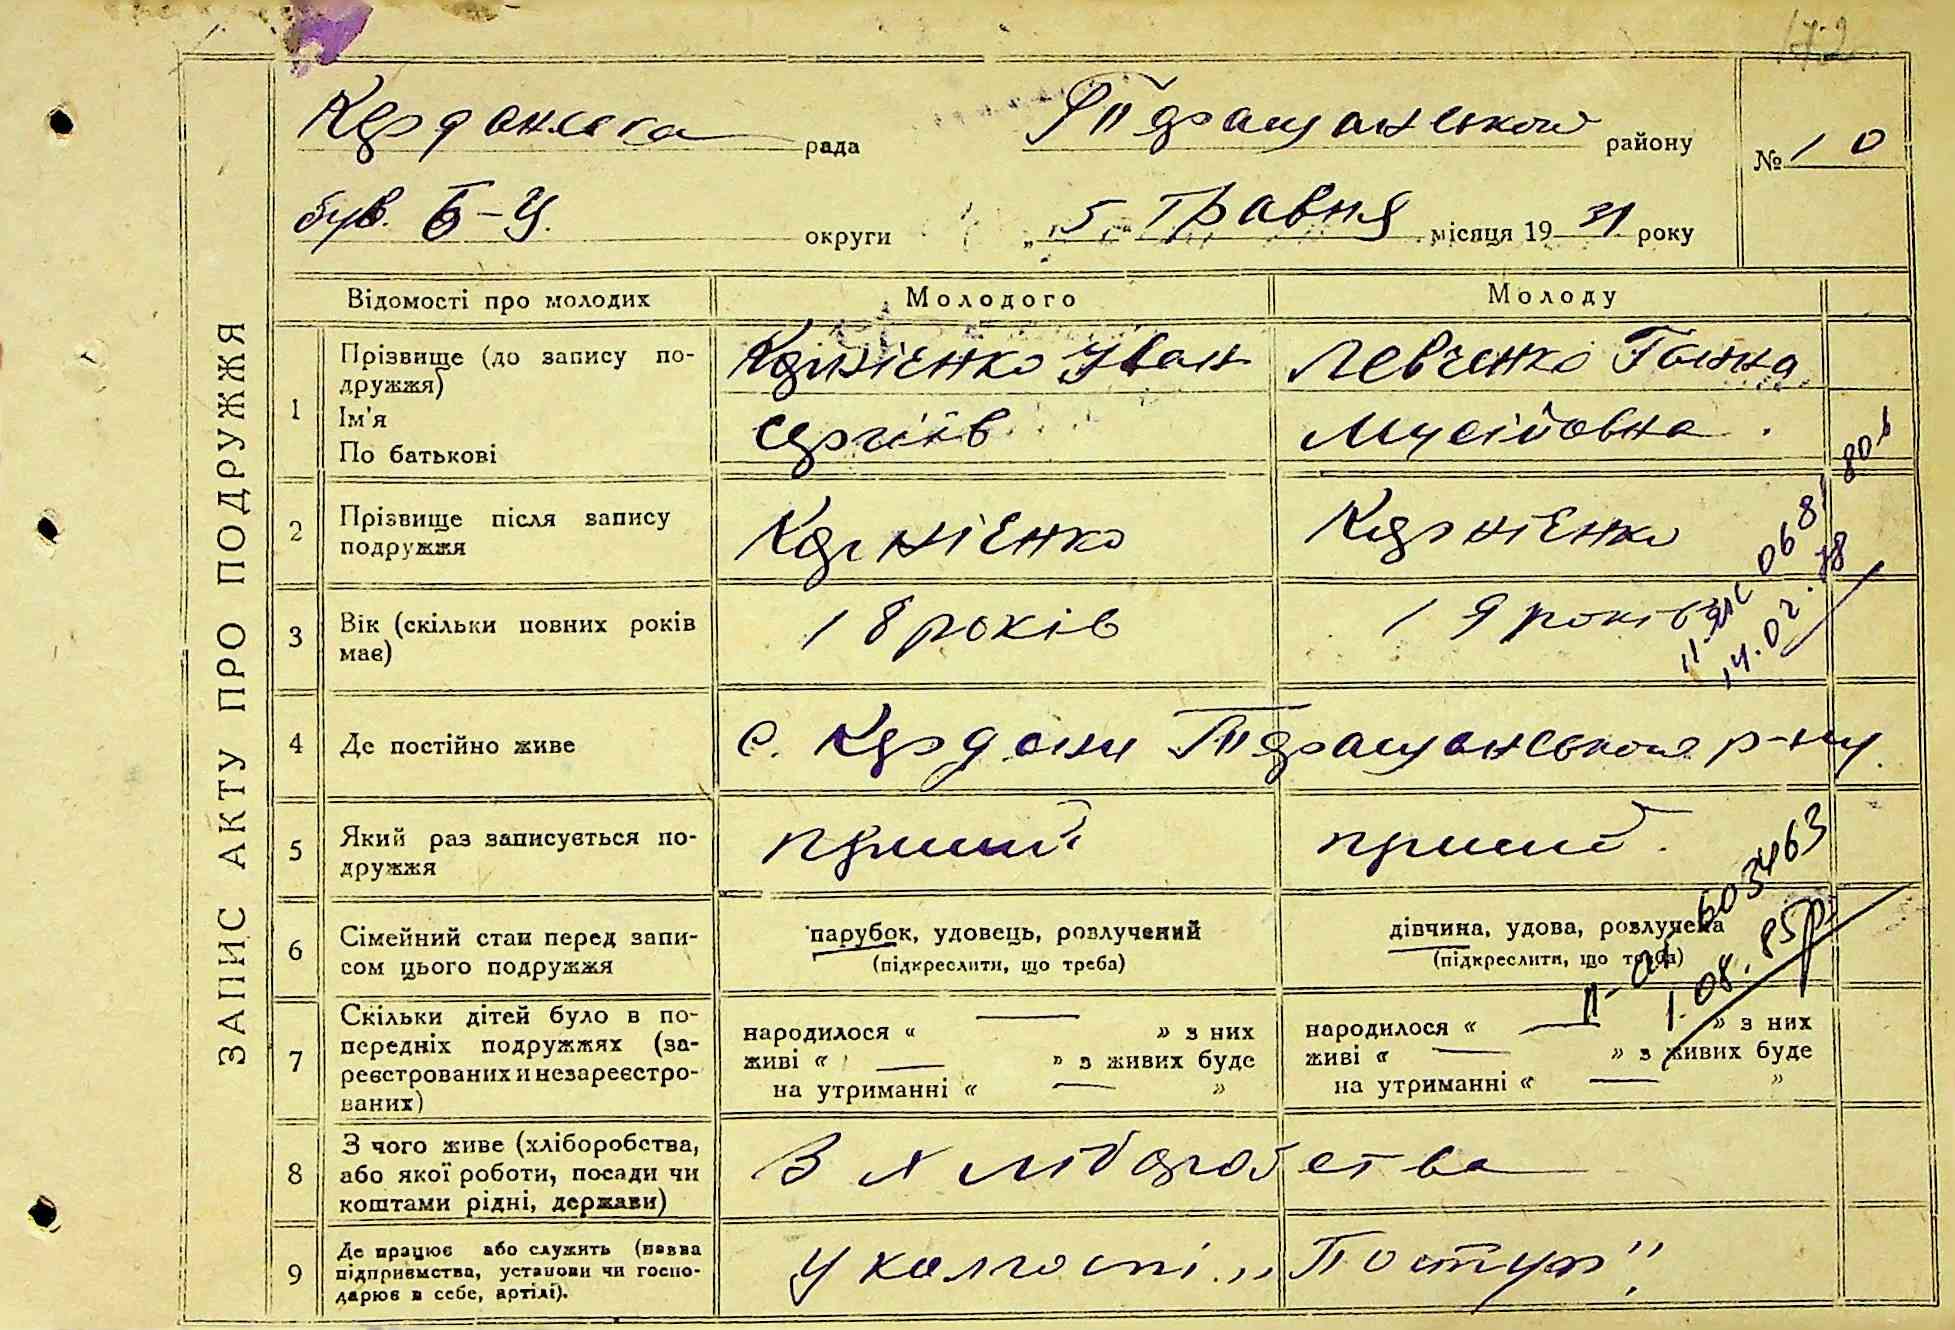 172
Кердонська рада Тіт Теращанського району № 10
був. Б-Ц. округи „5" травня місяця 1931 року
ЗАПИС АКТУ ПРО ПОДРУЖЖЯ
Відомості про молодих Молодого Молоду
1 Прізвище (до запису подружжя)
Ім'я
По батькові
Корнієнко Іван
Сергіїв
Левченко Ганна
Мусіївна.
2 Прізвище після запису
подружжя
Корнієнко Корнієнко
3 Вік (скільки повних років
має)
18 років 19 років
14.02.78
4 Де постійно живе с. Кердани Теращанського р-ну.
5 Який раз записується по-
дружжя
перший перший.
603463
1.08.85р.
6 Сімейний стан перед запи-
сом цього подружжя
парубок, удовець, розлучений
(підкреслити, що треба)
дівчина, удова, розлучена
(підкреслити, що треба)
7 Скільки дітей було в по-
передніх подружжях (за-
реєстрованих и незареєстро-
ваних)
народилося « — » з них
живі « — » з живих буде
на утриманні « — »
народилося « — » з них
живі « — » з живих буде
на утриманні « — »
8 З чого живе (хліборобства,
або якої роботи, посади чи
коштами рідні, держави)
З хліборобства
9 Де працює або служить (назва
підприємства, установи чи госпо-
дарює в себе, артілі).
У колгоспі „Постур"